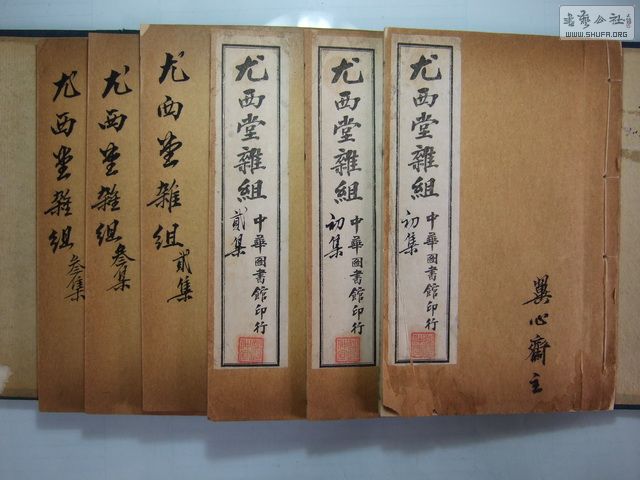 尤西堂雜組
初集
中華圖書館印行
異心齋主
尤西堂雜組
初集
中華圖書館印行
尤西堂雜組
貳集
中華圖書館印行
尤西堂雜組
貳集
尤西堂雜組
叁集
尤西堂雜組
叁集
書藝公社
WWW.SHUFA.ORG